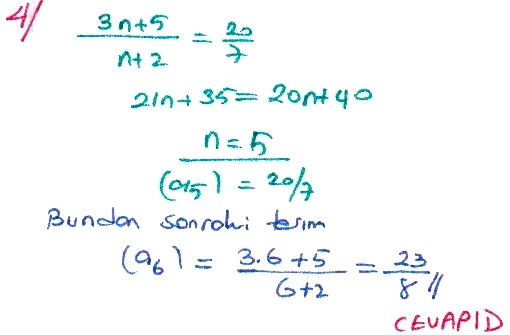 4/
3n+5/n+2 = 20/7
21n+35=20n+40
n=5
(a5) = 20/7
Bundan sonraki terim
(a6) = 3.6+5/6+2 = 23/8 //
CEVAP D